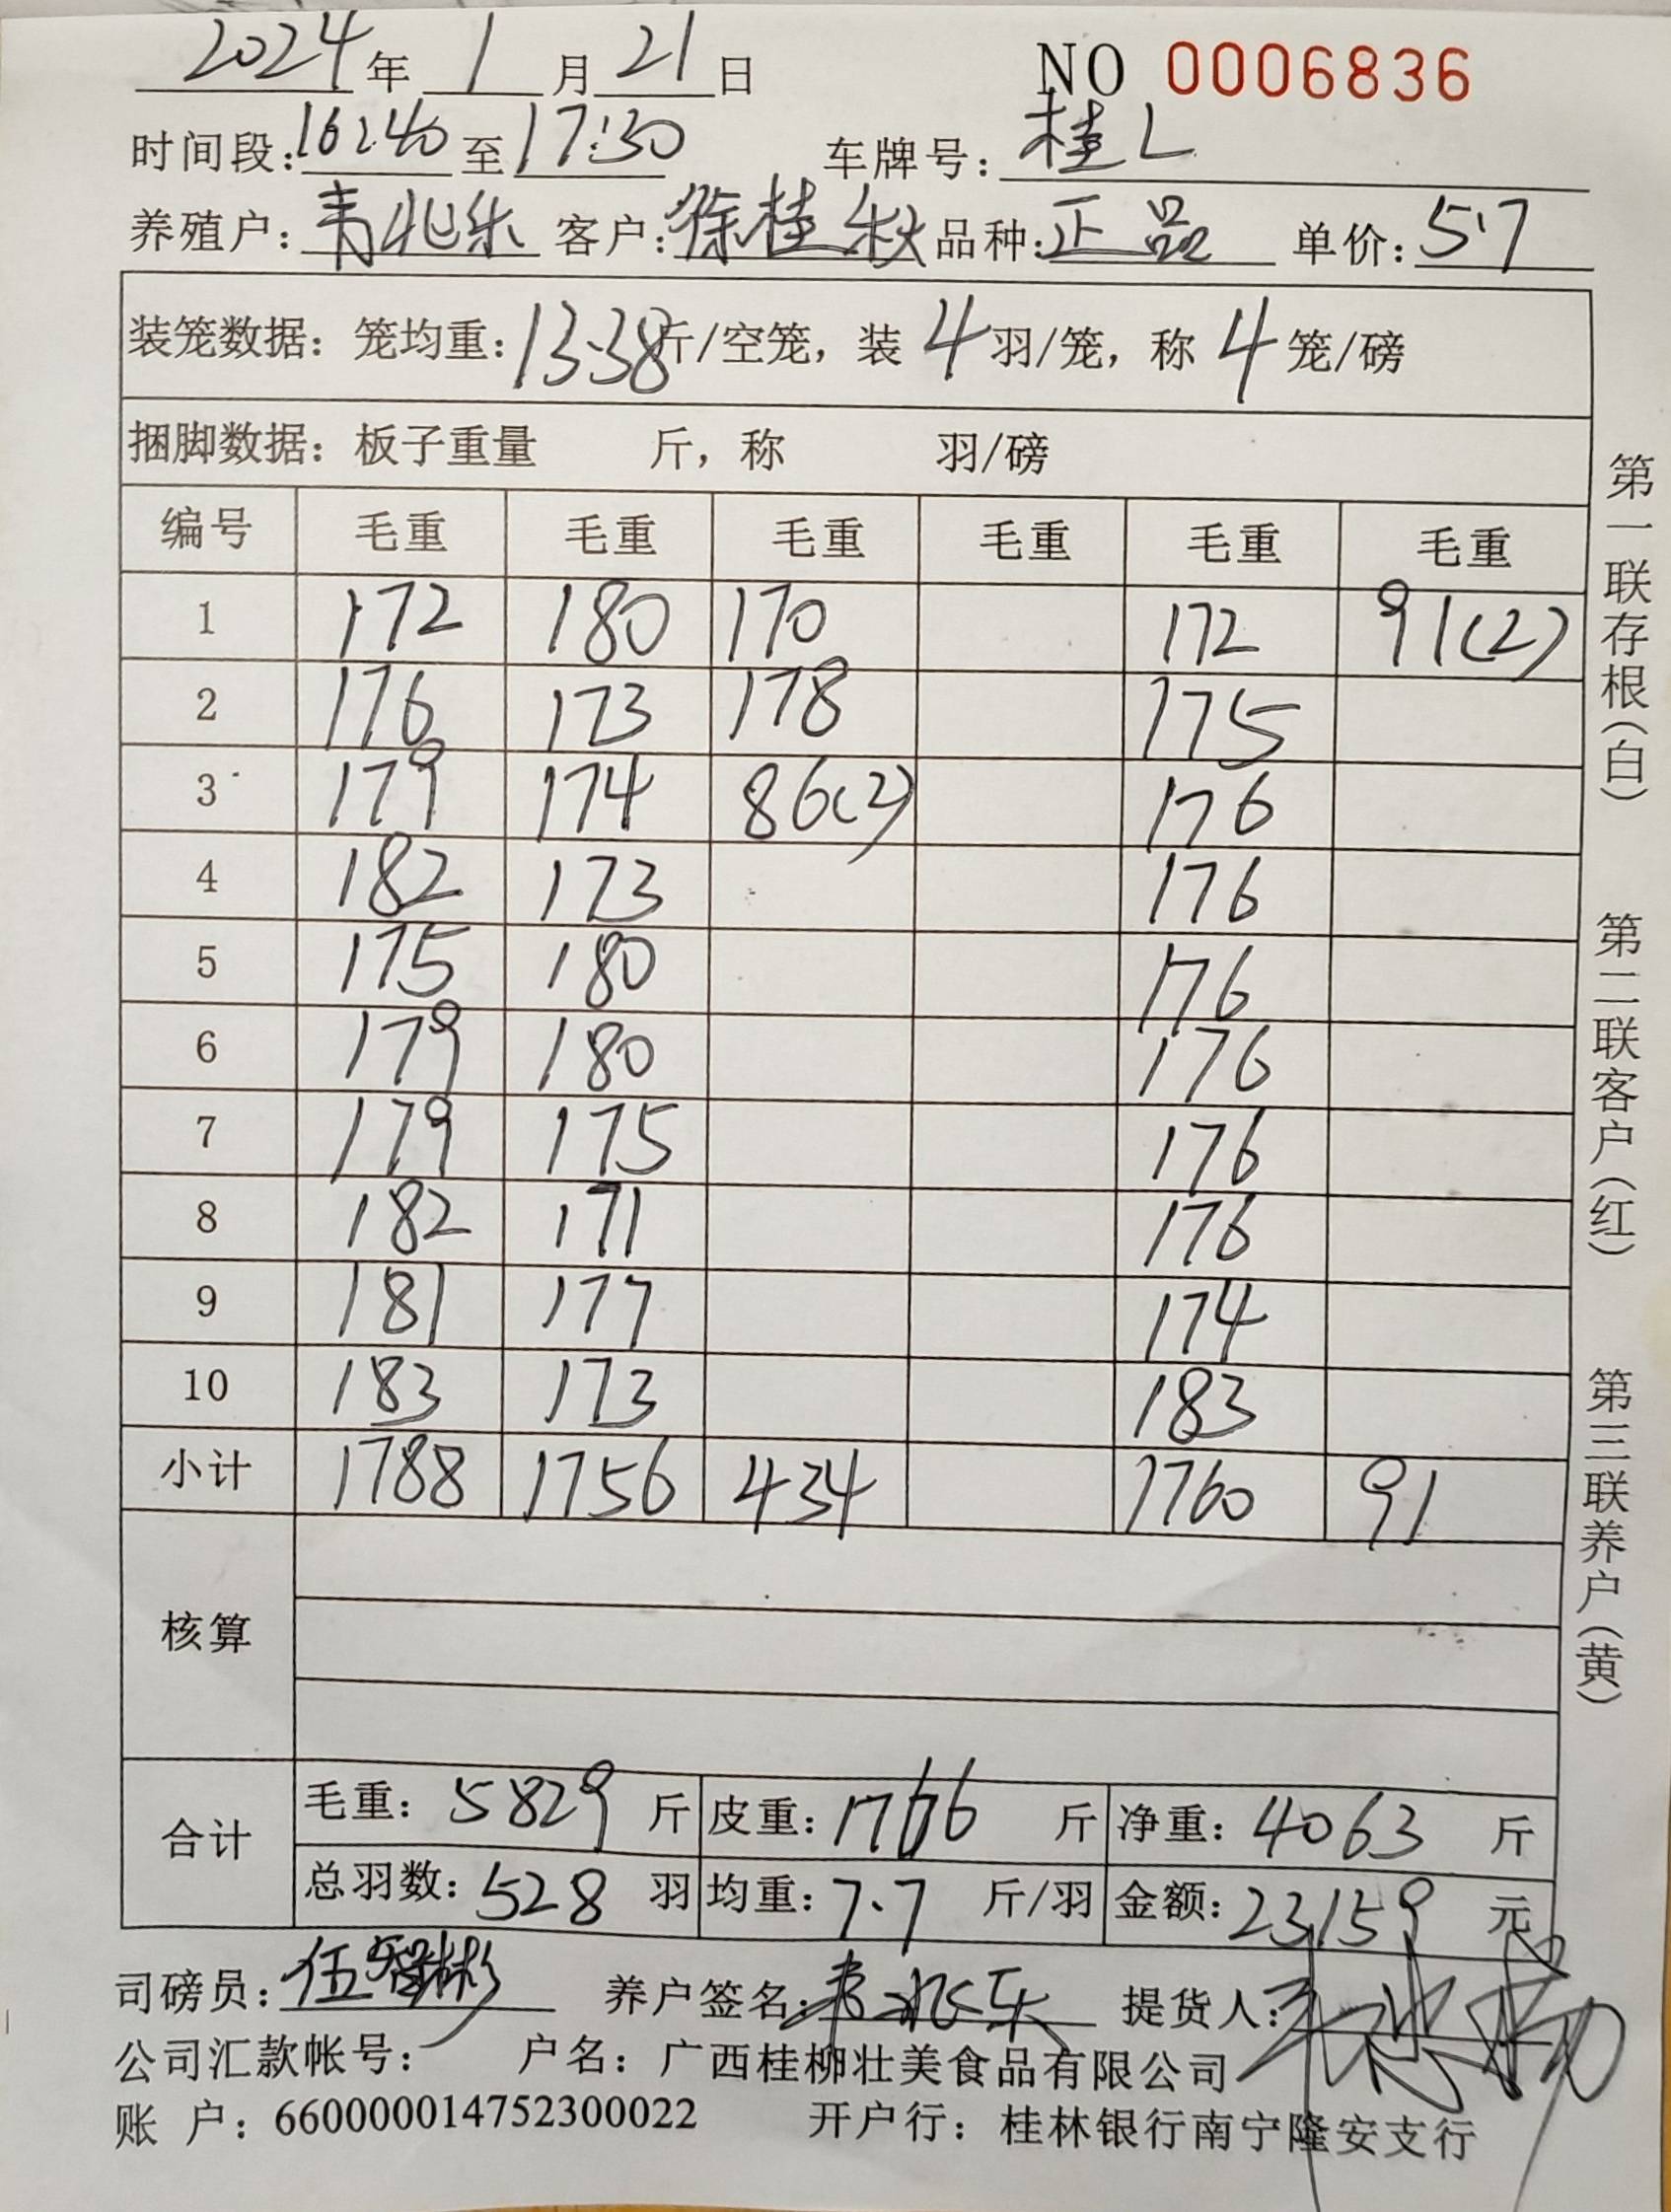 2024年 1月21日 NO 0006836
时间段:16:40至17:30 车牌号:桂L
养殖户:韦兆乐 客户:徐桂秋 品种:正品 单价:5.7
装笼数据：笼均重:13.38斤/空笼，装4羽/笼，称4笼/磅
捆脚数据：板子重量 斤，称 羽/磅
编号 毛重 毛重 毛重 毛重 毛重 毛重
1 172 180 170 172 91(2)
2 176 173 178 175
3 179 174 86(2) 176
4 182 173 176
5 175 180 176
6 179 180 176
7 179 175 176
8 182 171 176
9 181 177 174
10 183 173 183
小计 1788 1756 434 1760 91
核算
合计
毛重：5829斤 皮重：1766斤 净重：4063斤
总羽数：528羽 均重：7.7斤/羽 金额：23159元
司磅员: 养户签名:韦兆乐 提货人:
公司汇款帐号： 户名：广西桂柳壮美食品有限公司
账 户：660000014752300022 开户行：桂林银行南宁隆安支行
第一联存根(白)
第二联客户(红)
第三联养户(黄)